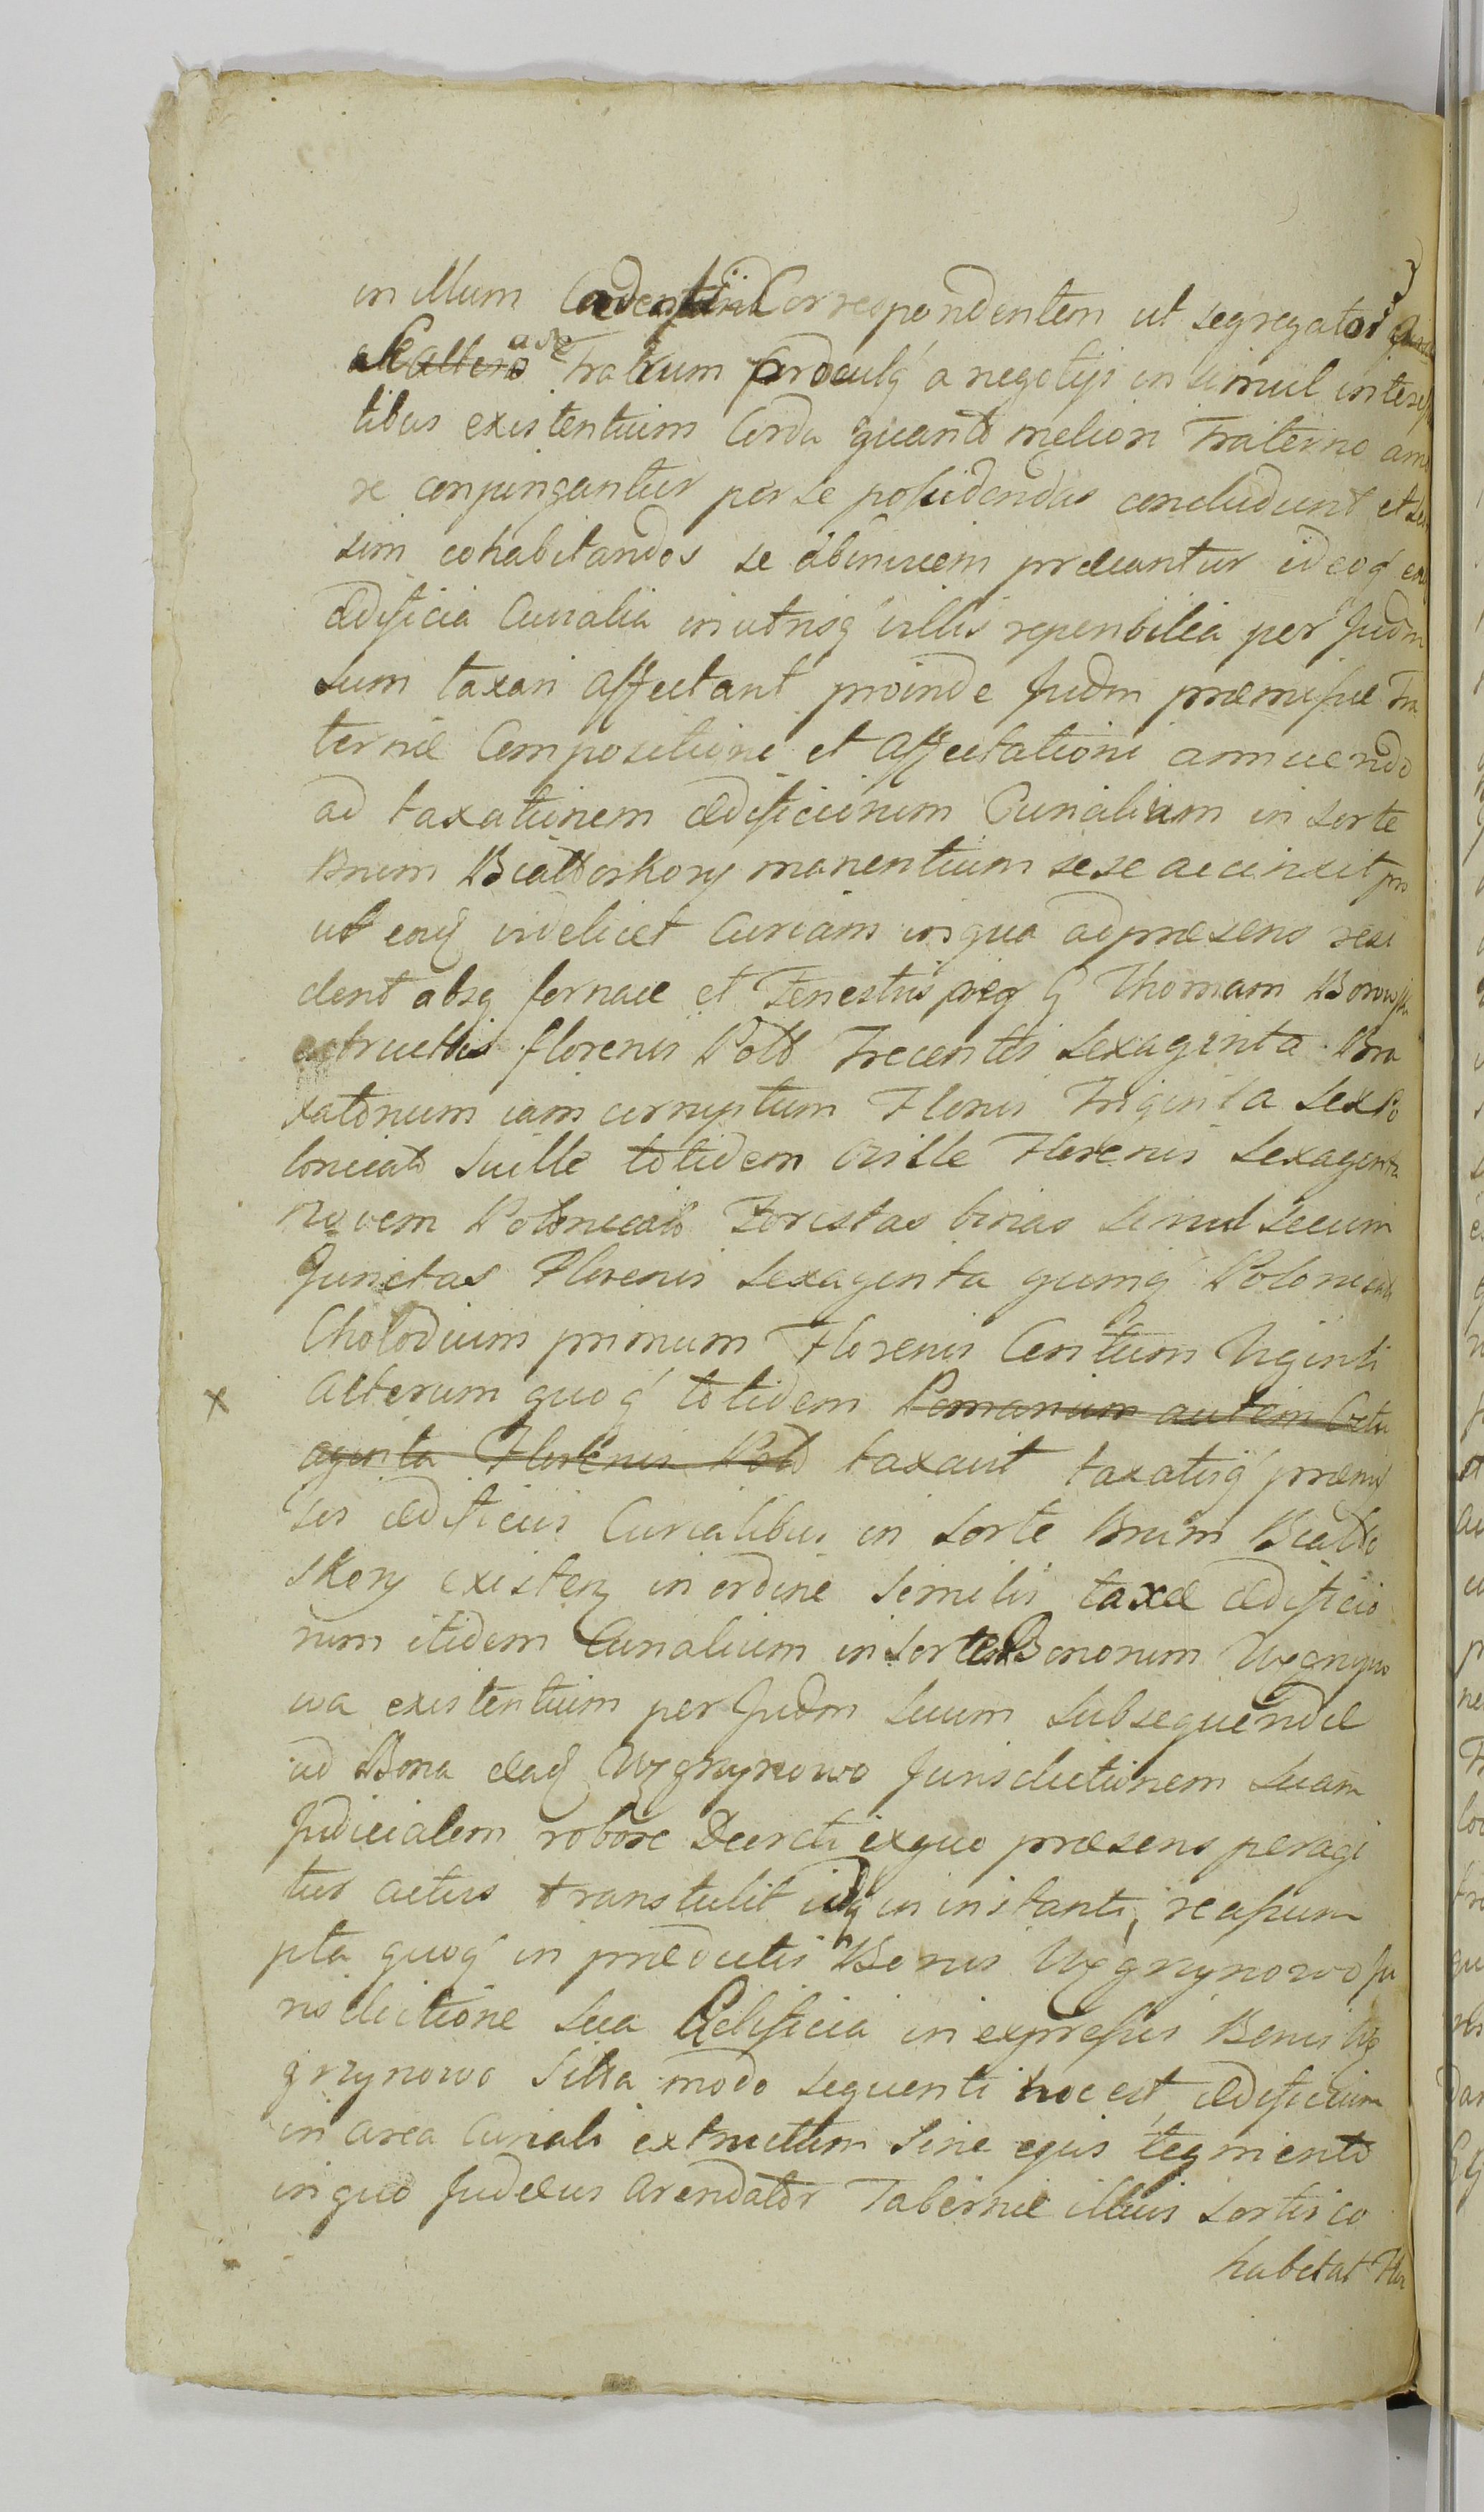 in illum Cadentem Correspondentem ut segregatos
Fratrum procul q̃ a negotijs in simul interes
tibus existentium Corda quanto meliori Fraterno amo
re conjungantur per se possidendas concludunt et
sim cohabitandos se abinvicem precantur ideoq̃
ædificia Curialia in utrisq̃ villis reperibilia per Judm
suum taxari affectant proinde Judm præmissæ Fra
ternæ Compositioni et affectationi annuendo
ad taxationem ædificiorum Curialium in sorte
Bnrum Białłoskory manentium sese accinxit pro
ut eaq̃ videlicet Curiam in qua ad præsens resi
dent absq̃ fornace et Fenestris per G Thomam
extructis florenis Poll Trecentis Sexaginta Bra
xatorium iam corruptum Florenis Triginta Sex Po
lonicalb Suille totidem Oville Florenis Sexaginta
Novem Polonicalb binas simul secum
Junctas Florenis Sexaginta quinq̃ Polonicalb
Cholodium primum Florenis Centum Viginti
Alterum quoq̃ totidem Pomarium autem Octu
aginta Florenis Poll taxavit taxatisq̃ præmis
sis ædificiis Curialibus in Sorte Bnrum Białło
skory existen in ordine similis taxæ ædificio
rum itidem Curialium in Sorte Bonorum Węgrzyno
wa existentium per Judm suum subsequendæ
ad Bona eaq̃ Węgrzynowo Jurisdictionem suam
Judicialem robore Decreti ex quo præsens peragi
tur actus transtulit idq̃ in instanti, reassum
pta quoq̃ in prædictis Bonis Węgrzynowo Ju
risdictione sua Ædificia in expressis Bonis Wę
grzynowo Sitta modo sequenti hoc est ædificium
in area Curiali extructum sine ejus tegmento
in quo Judæus arendator Tabernæ illius sortis co
habitat Flor
x